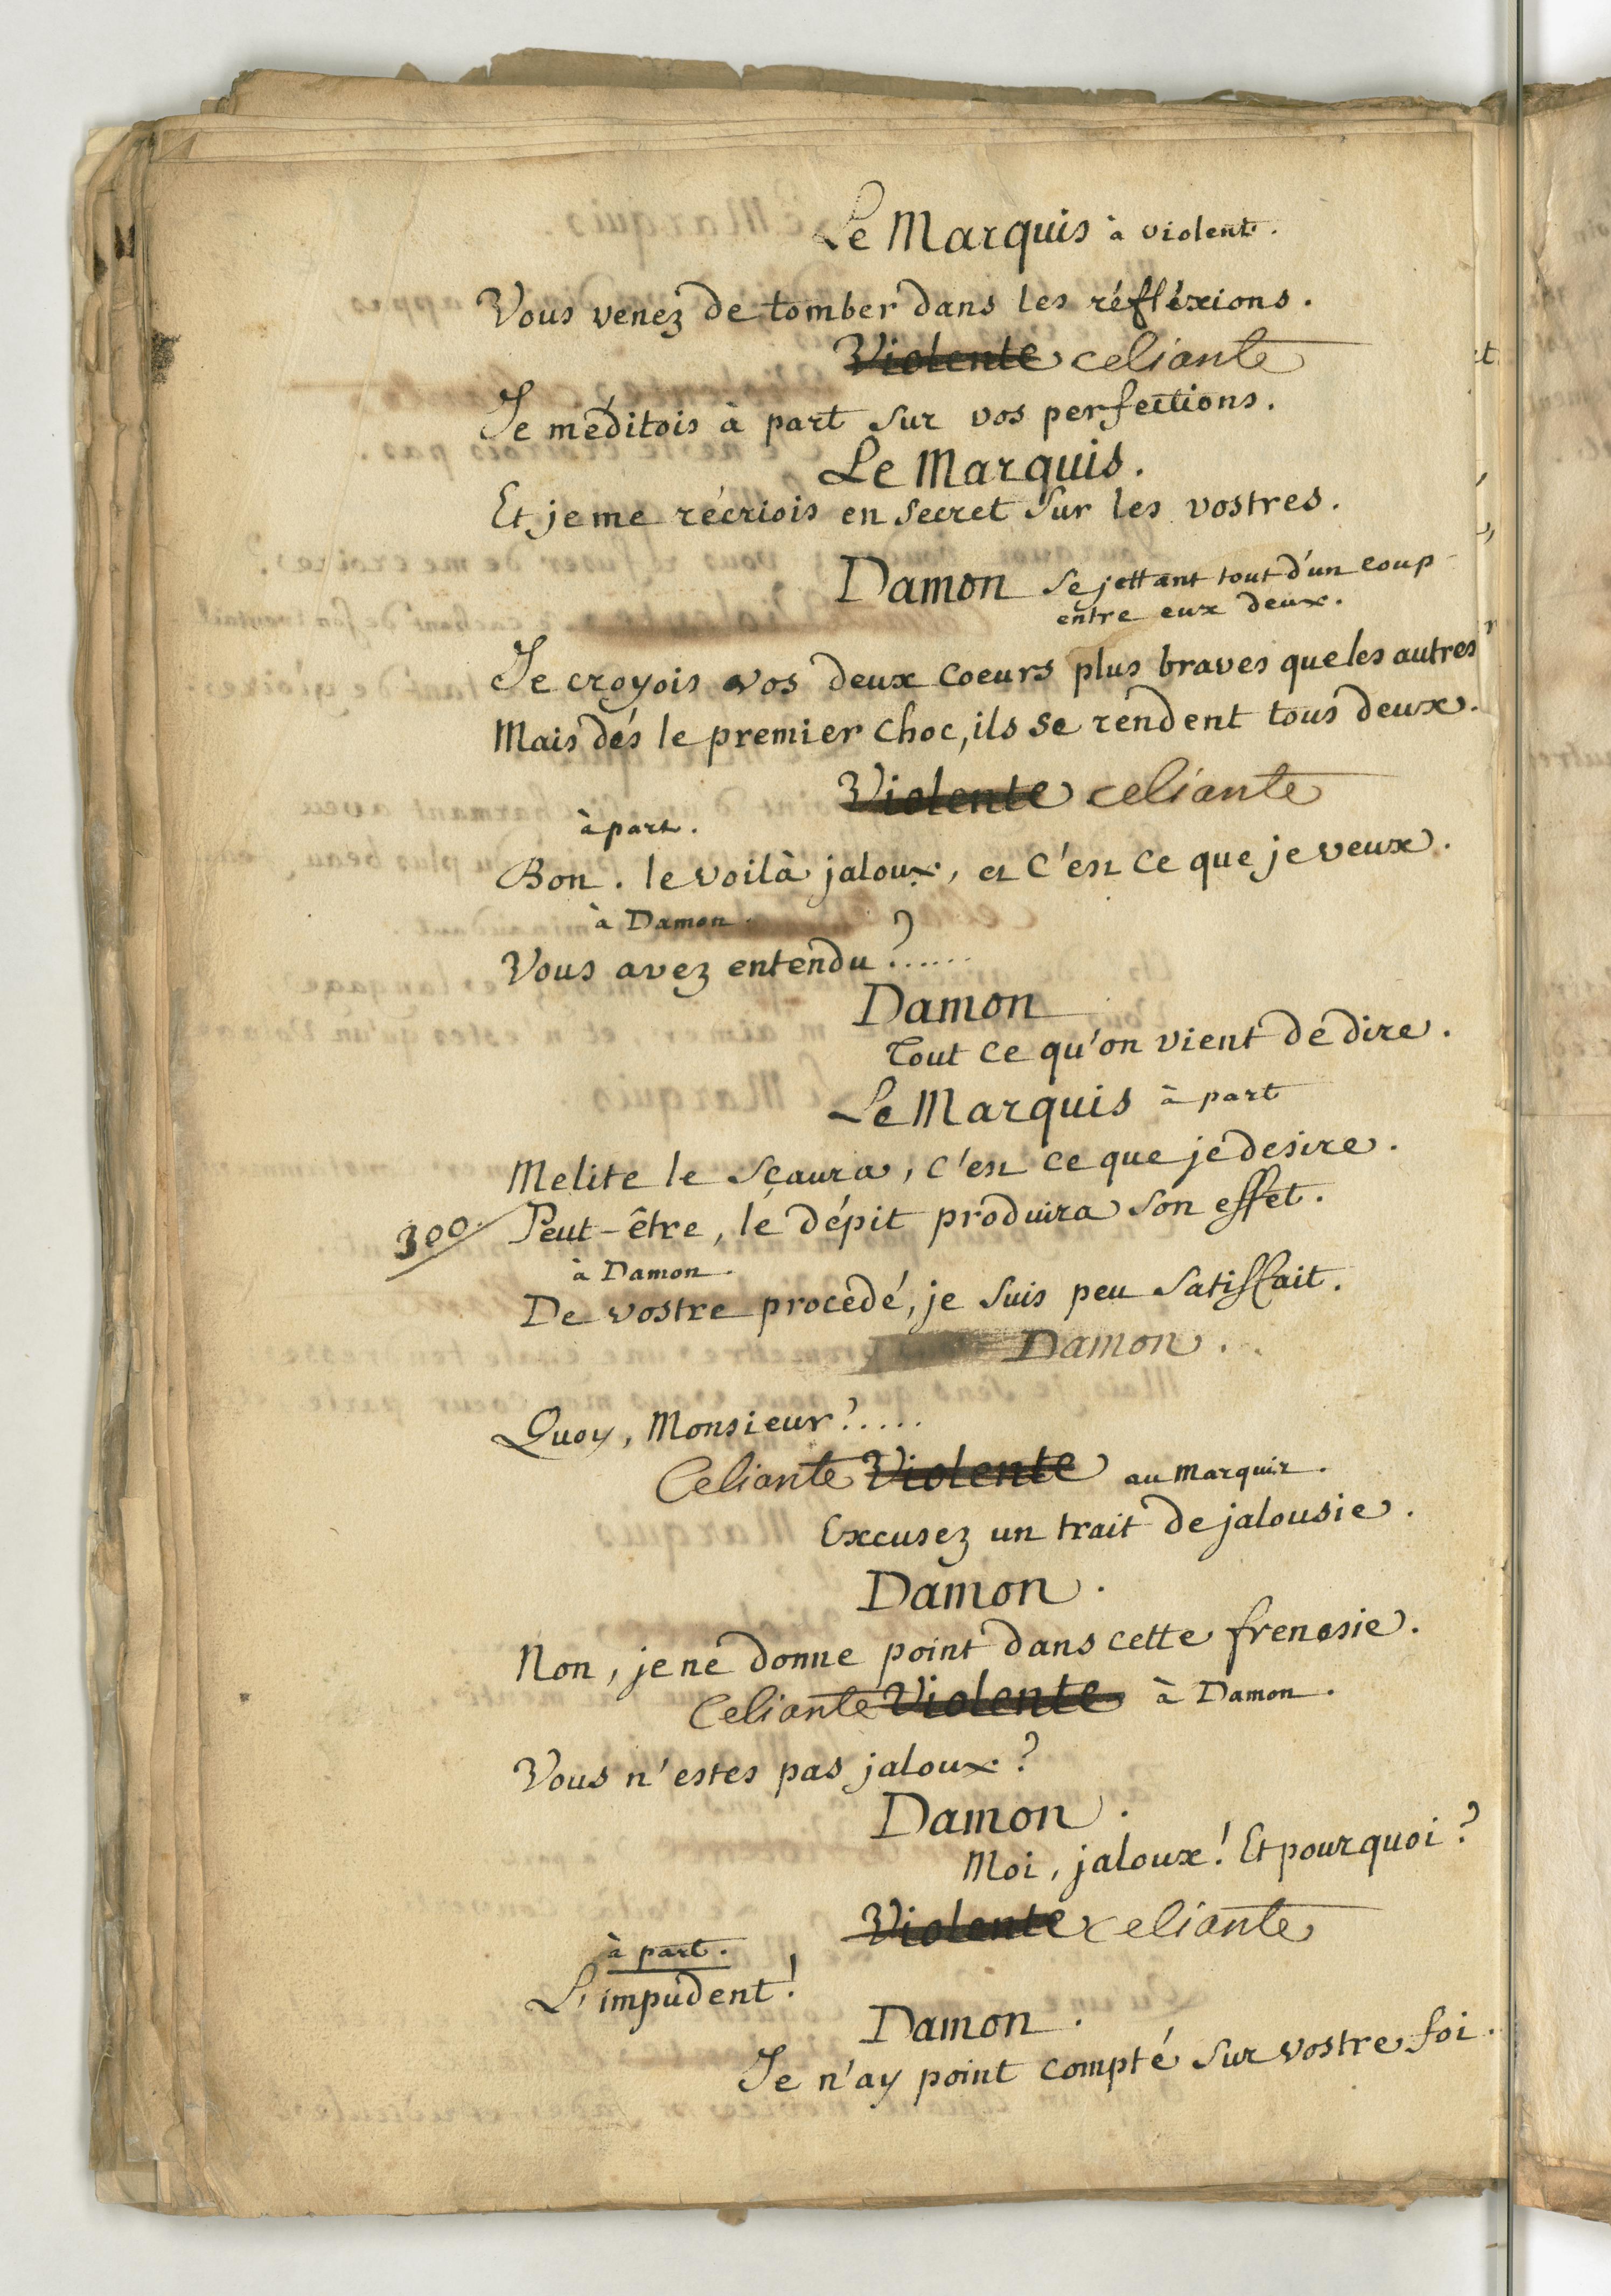 Le Marquis à violent.
Vous venez de tomber dans les réfléxions.
Violente celiante
Je méditois à part sur vos perfections.
Le Marquis.
Et je me récriois en secret sur les vostres.
Damon se jettant tout d'un coup
entre eux deux.
Je croyois vos deux coeurs plus braves que les autres
Mais dés le premier choc, ils se réndent tous deux.
Violente celiante
à part.
Bon. le voilà jaloux, et c'est ce que je veux.
à Damon.
Vous avez entendu ?......
Damon
Tout ce qu'on vient de dire.
Le Marquis à part
Melite le sçaura, c'est ce que je desire.
300. Peut-être, le dépit produira son effet.
à Damon.
De vostre procédé, je suis peu satisfait.
Damon.
Quoy, Monsieur ?....
Celiante Violente au Marquis.
Excusez un trait de jalousie.
Damon.
Non, je ne donne point dans cette frenesie.
Celiante Violente à Damon.
Vous n'estes pas jaloux ?
Damon.
Moi, jaloux ! Et pourquoi ?
Violente celiante
à part.
L'impudent !
Damon.
Je n'ay point compté sur vostre foi.